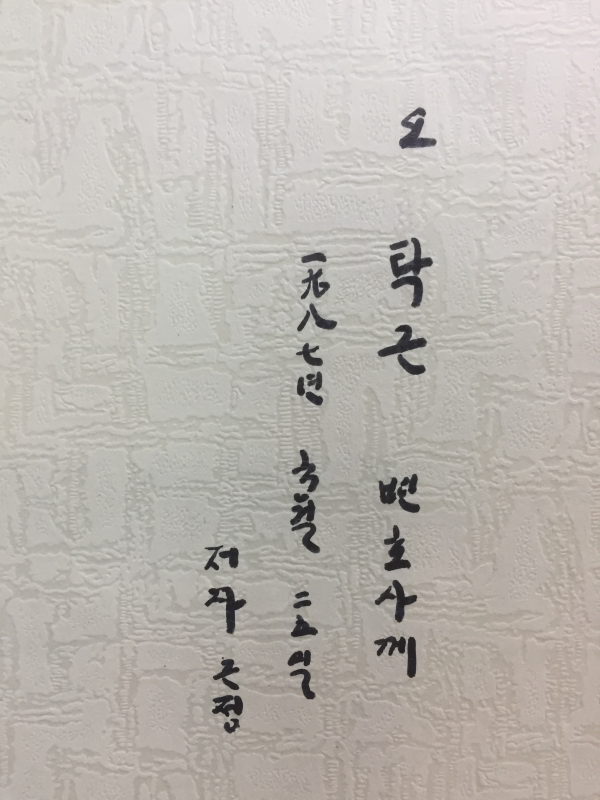 오 탁근 변호사께
一九八七년 六월 二五일
저자 근정